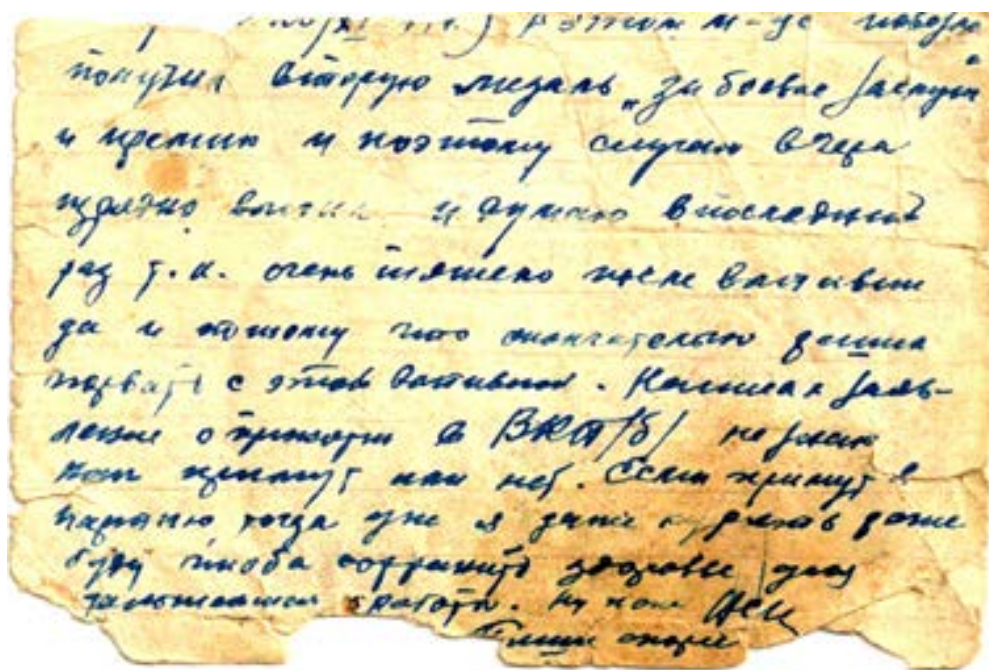 получил вторую медаль „За боевые заслуги
и премию и поэтому случаю вчера
изрядно выпил и думаю в последний
раз т.к. очень тяжело после выпивки
да и потому что окончательно решил
порвать с этой выпивкой. Написал заяв-
ление о принятии в ВКП/б/ не знаю
примут или нет. Если примут в
партию тогда уже я даже курить
буду чтоба сохранить здоровье для
работы. Ну пока
Пиши скорее